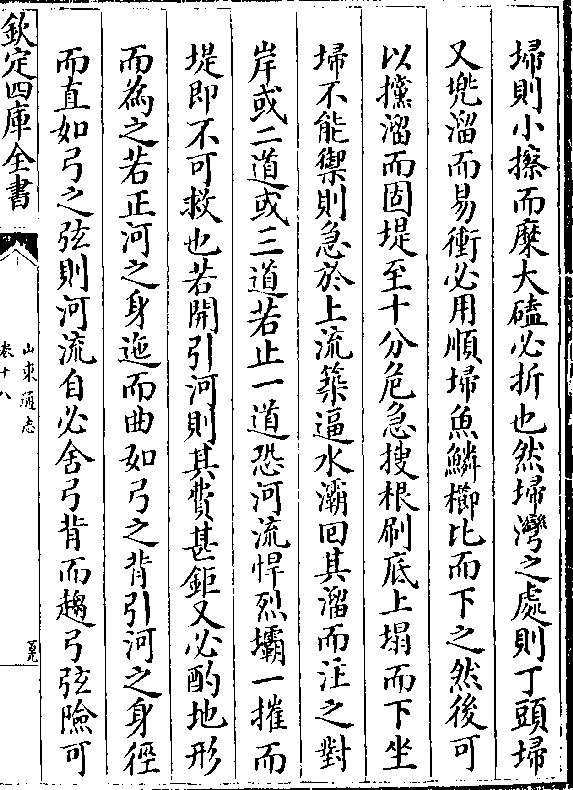 埽則小擦而糜大磕必折也然埽灣之處則丁頭埽
又兠溜而易衝必用順埽魚鱗櫛比而下之然後可
以攩溜而固堤至十分危急搜根刷底上塌而下坐
埽不能禦則急於上流築逼水灞回其溜而注之對
岸或二道或三道若止一道恐河流悍烈壩一摧而
堤即不可救也若開引河則其費甚鉅又必酌地形
而為之若正河之身迤而曲如弓之背引河之身徑
而直如弓之弦則河流自必舍弓背而趨弓弦險可
欽定四庫全書
山東通志
卷十八